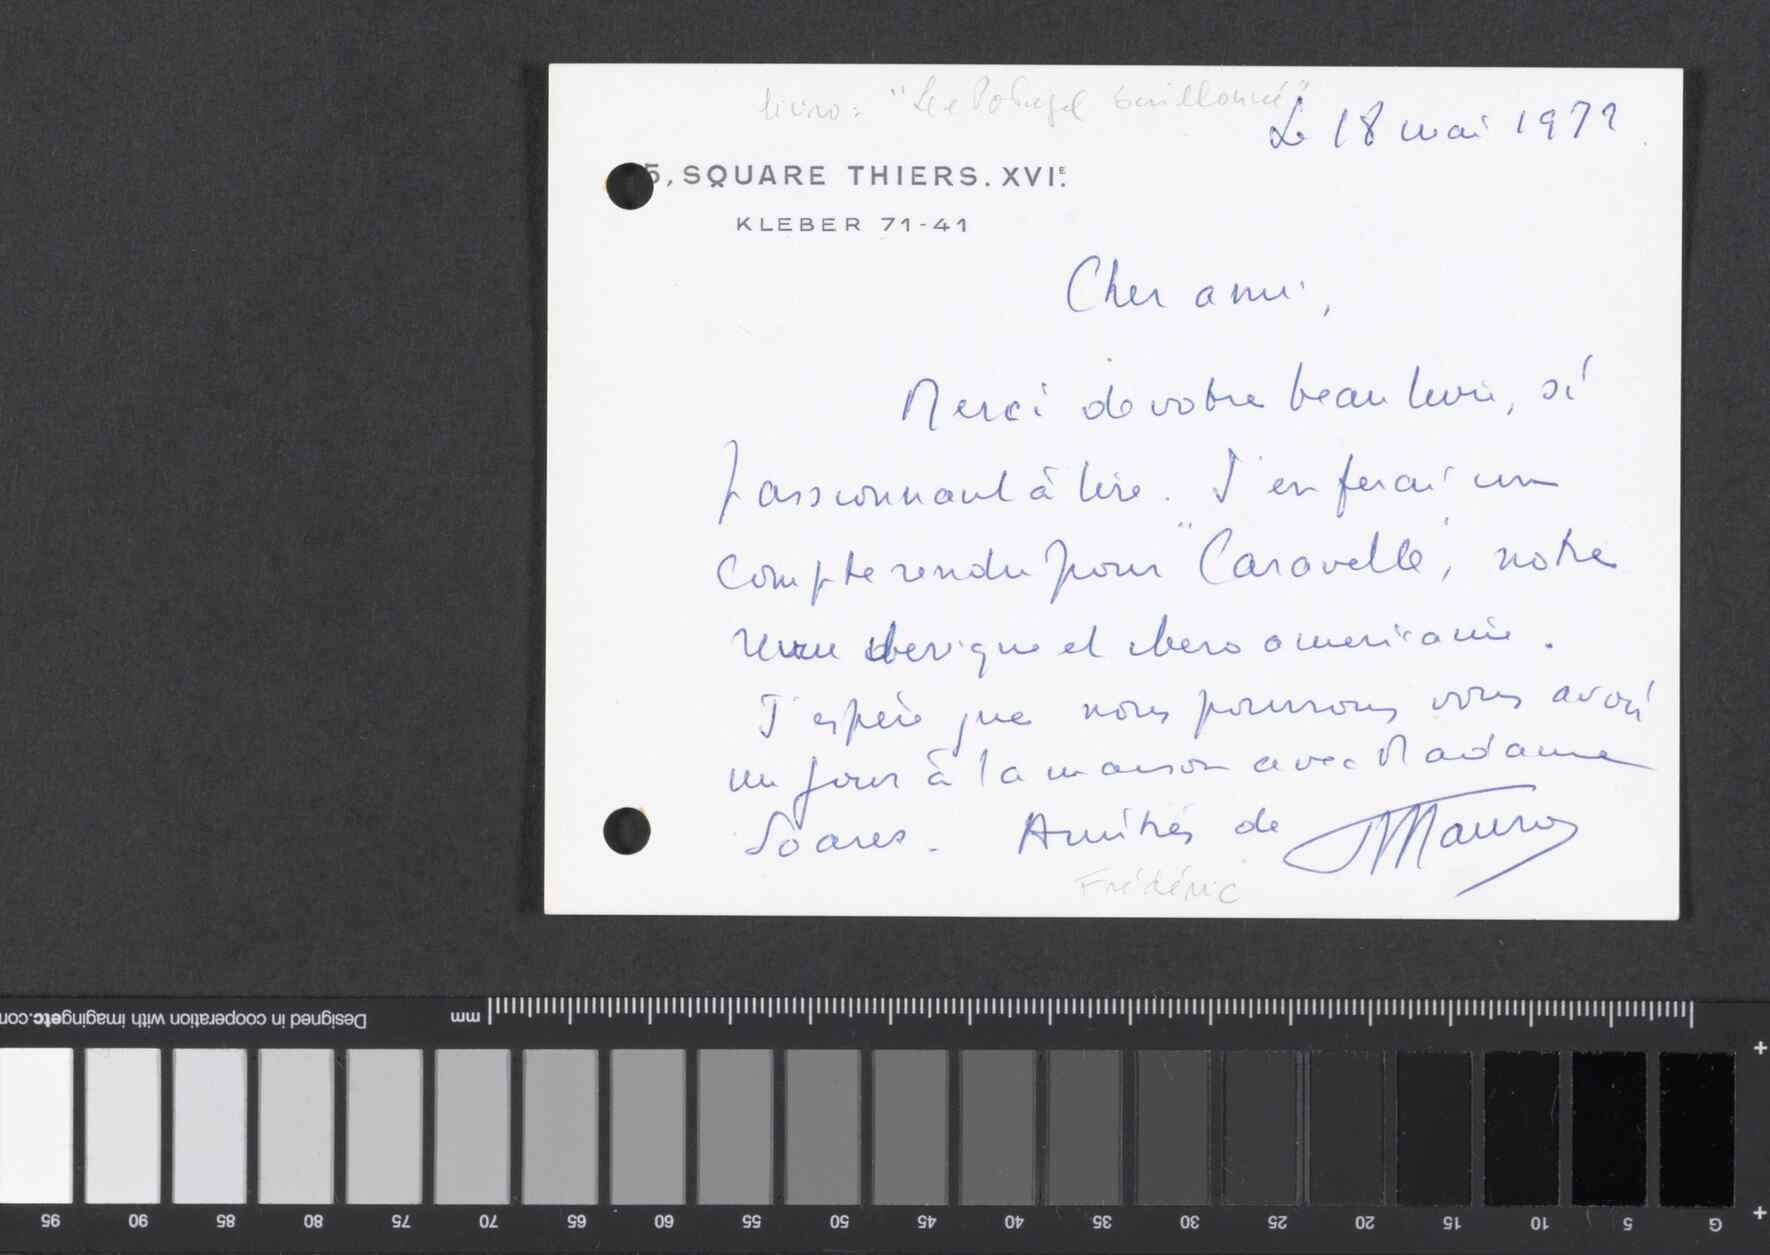 livro: "Le Portugal bailloné"
Le 18 mai 1972
5, SQUARE THIERS. XVIE.
KLEBER 71-41
Cher ami,
Merci de votre beau livre, si
passionnant à lire. J'en ferai un
compte rendu pour "Caravelle", notre
revue iberique et ibero americaine.
J'espère que nous pourrons vous avoir
un jour à la maison avec Madame
Soares. Amitiés de FMauro
Frédéric
Designed in cooperation with imagingetc.com
mm
95 90 85 80 75 70 65 60 55 50 45 40 35 30 25 20 15 10 5 G